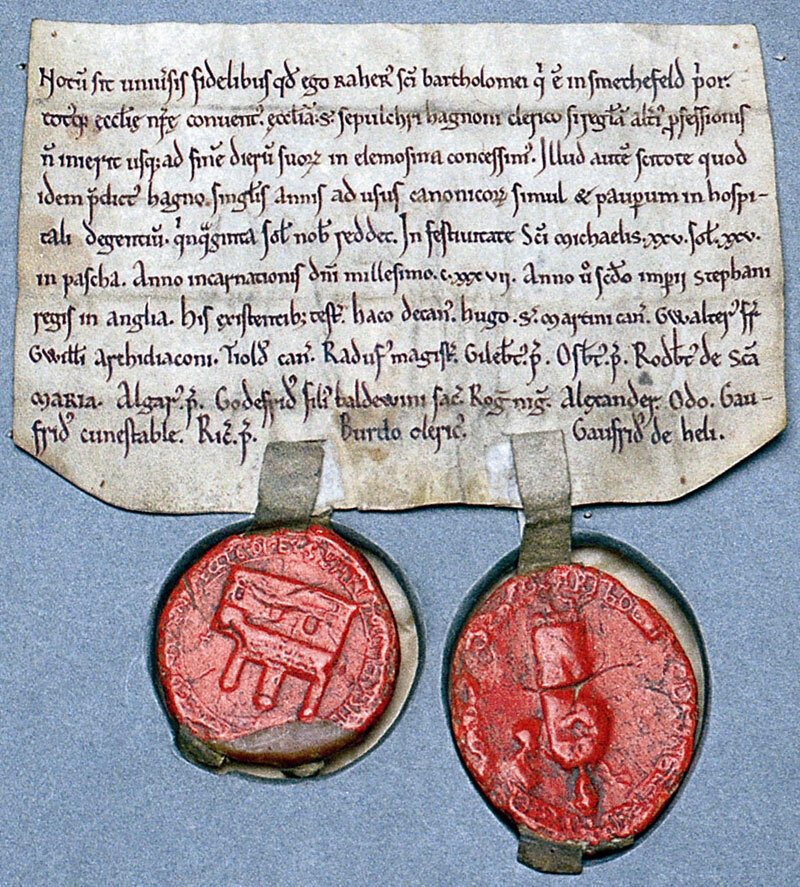 Notū sit uniu͛sis fidelibus qđ ego raher᾽ sc̄i bartholomei q̄ ē in smethefeld p̄or.
totusq; ęcclię nr̄ę conuent᾽. ęcclīa᷒ .s᷒. sepulchri hagnoni clerico si regłā alt᾽i᷒ ꝓfessionis
n̄ inierit usq; ad finē dierū suoꝝ in elemosina concessim᷒. Illud autē scitote quod
idem p̄dict᷒ hagno singłis annis ad usus canonicoꝝ simul & pauꝑum in hospi-
tali degentiū. q̄nq̄ginta sol᷒ nob᷒ reddet. In festiuitate Sc̄i michaelis .xxv. sol᷒ .xxv.
in pascha. Anno incarnationis dn̄i millesimo .c.xxxvii. Anno ů scd̄o imꝑii stephani
regis in anglia. his existentib; test᷒. haco decan᷒. hugo .s᷒. martini can᷒. Gwalter᷒ fr̄
Gwiłłi Archidiaconi. Tiold᷒ can᷒. Raduf᷒ magist᷒. Gileb᷒t᷒ .p̄. Osb᷒t᷒ .p̄. Rodb᷒t᷒ de Sc̄a
maria. Algar᷒ .p̄. Godefrid᷒ fili᷒ baldewini sac᷒. Rog᷒ nig᷒. Alexander. Odo. Gau-
frid᷒ cunestable. Ric᷒ .p̄. Burdo cleric᷒. Gauffrid᷒ de heli.